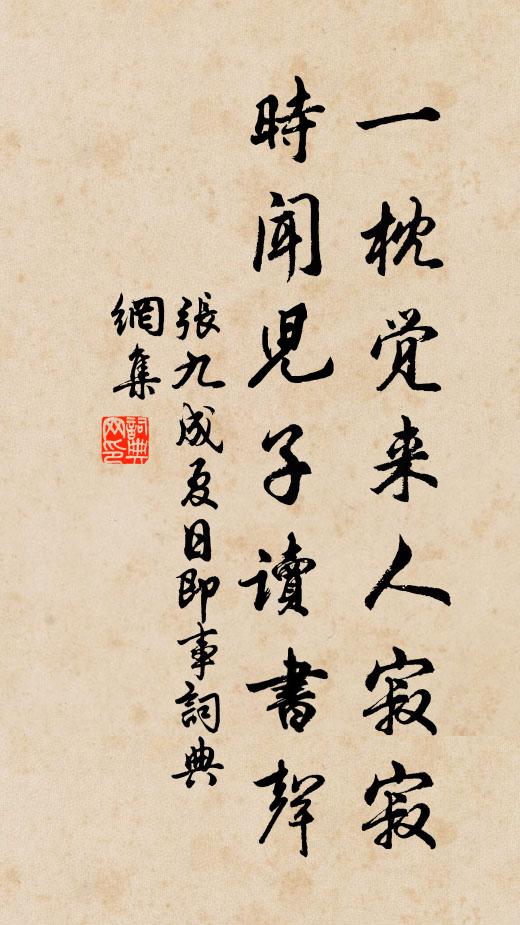 一枕觉来人寂寂
時聞児子讀書聲
張九成夏日即事詞典
網集
詞典
网印